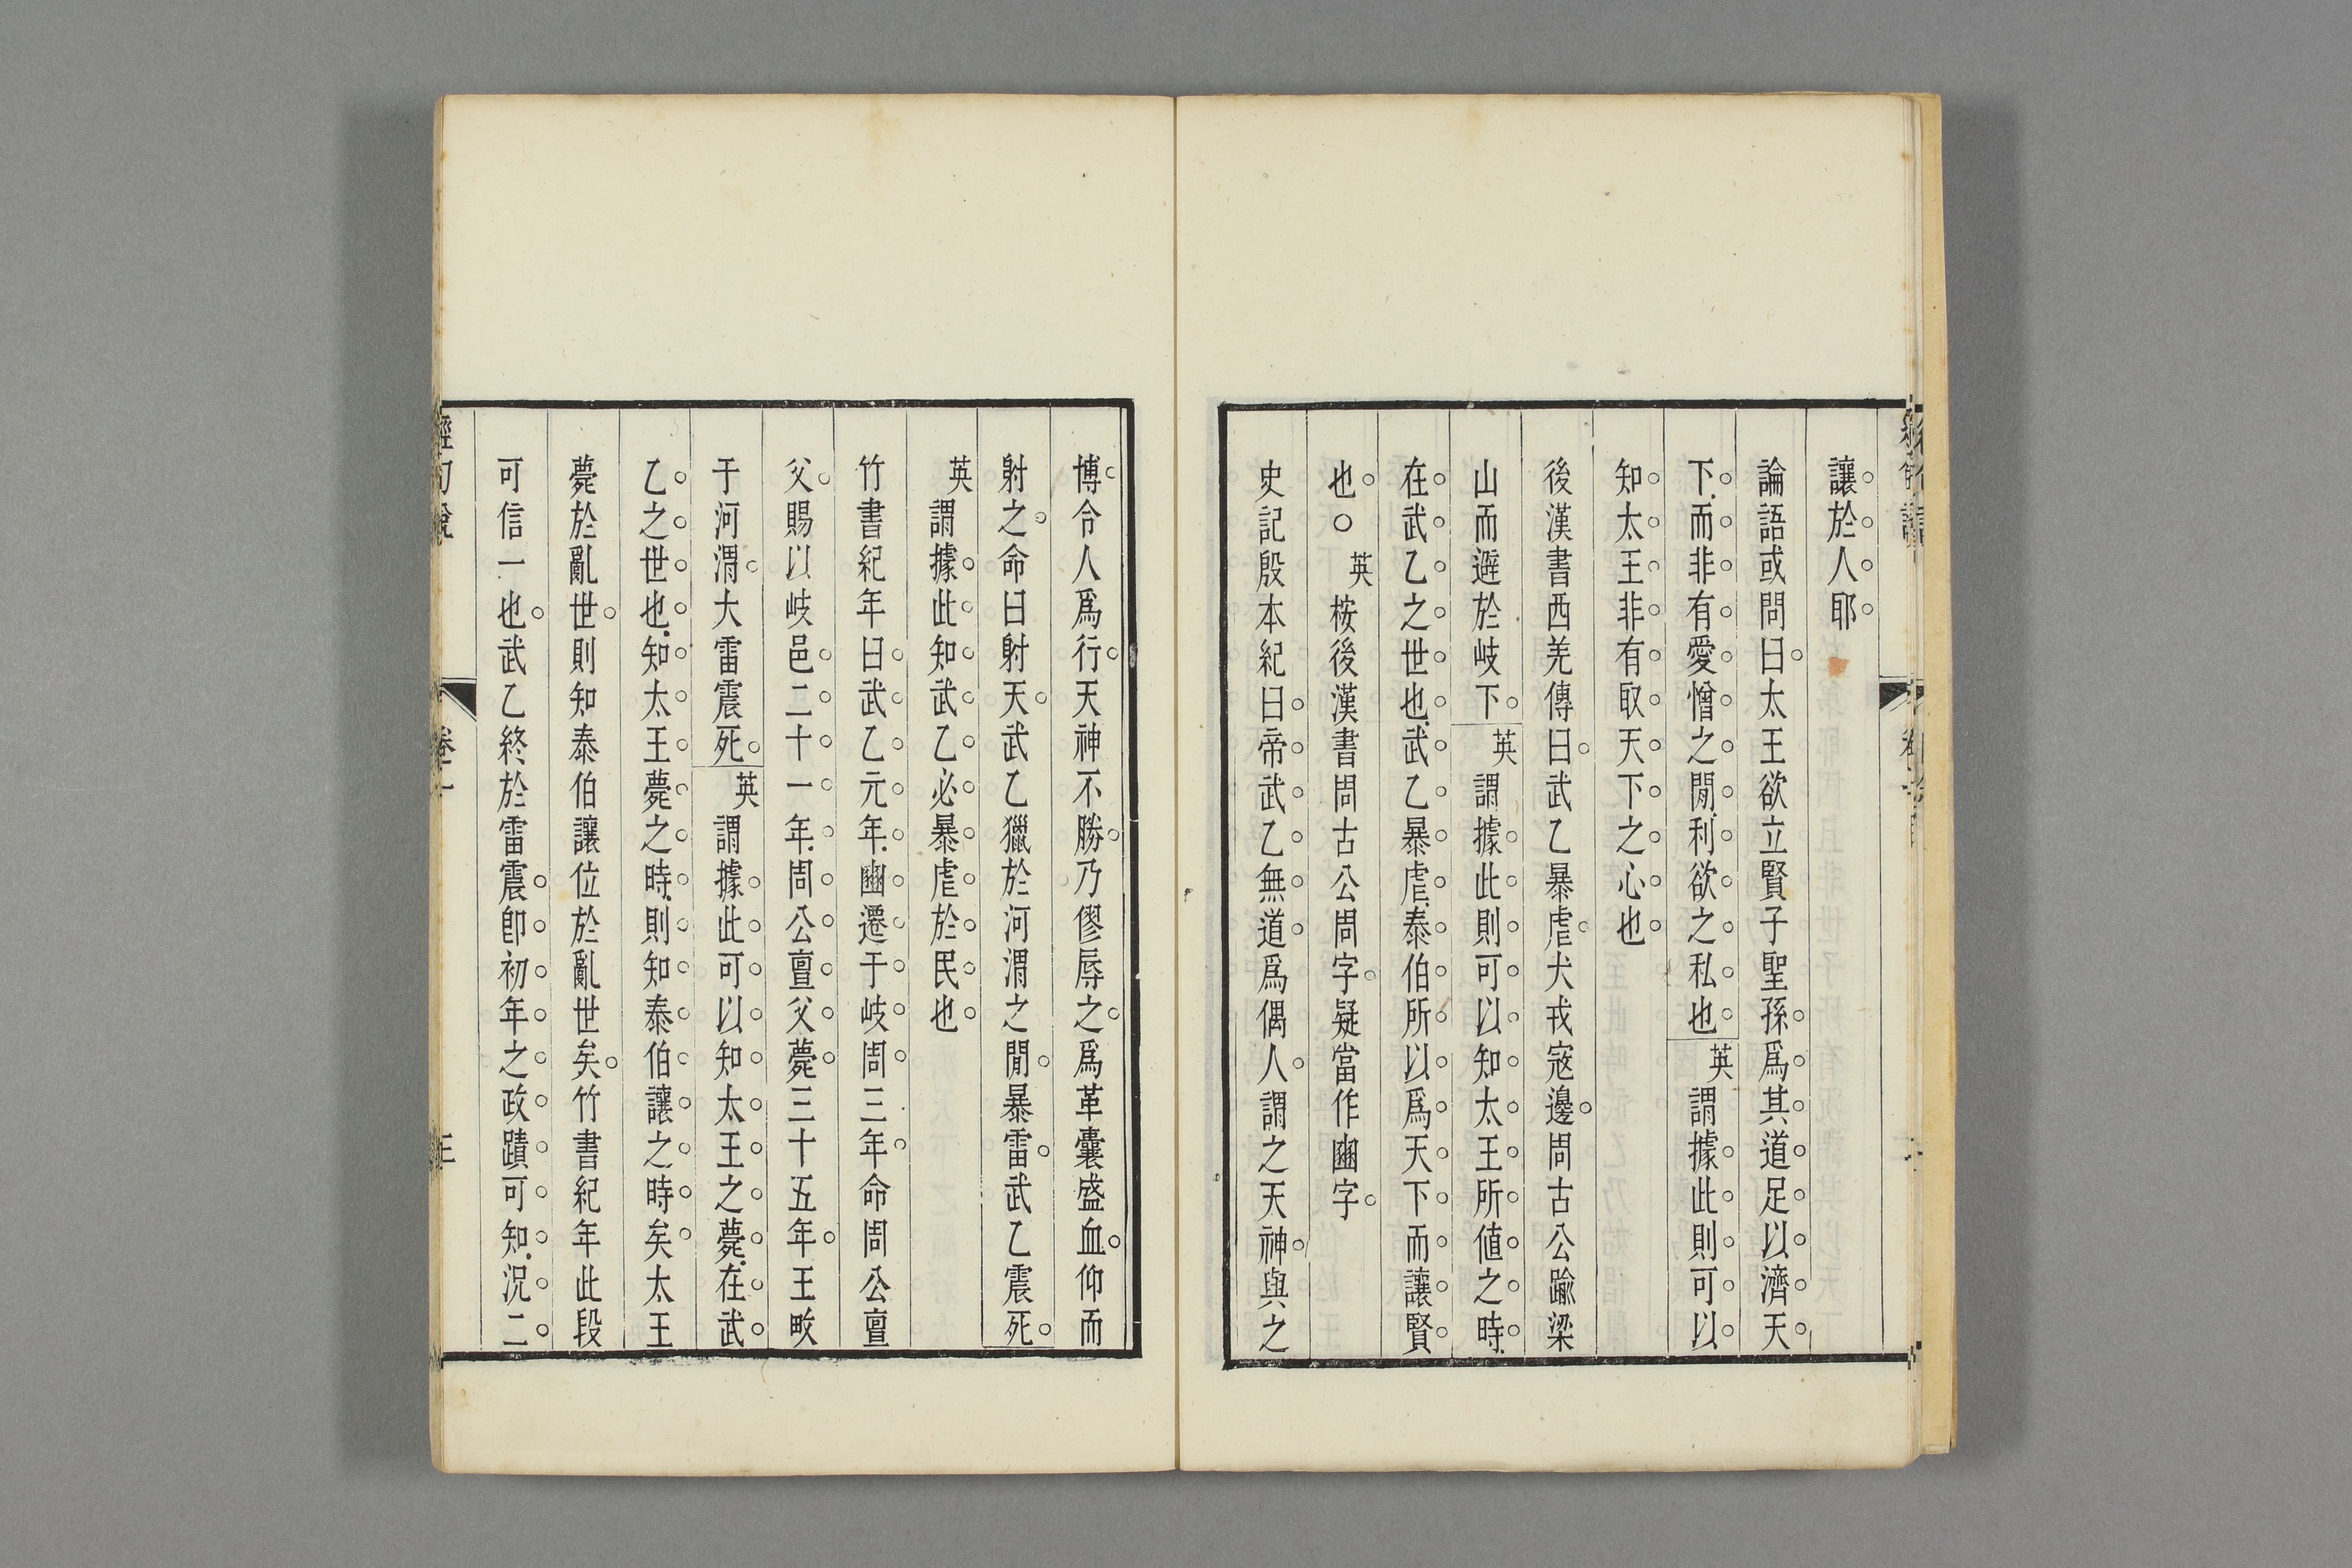 讓於人耶
論語或問曰太王欲立賢子聖孫爲其道足以濟天
下而非有愛憎之閒利欲之私也英謂據此則可以
知太王非有取天下之心也
後漢書西羌傳曰武乙暴虐犬戎寇邊周古公踰梁
山而避於岐下英謂據此則可以知太王所値之時
在武乙之世也武乙暴虐泰伯所以爲天下而讓賢
也○英桉後漢書周古公周字疑當作豳字
史記殷本紀曰帝武乙無道爲偶人謂之天神與之
博令人爲行天神不勝乃僇辱之爲革囊盛血仰而
射之命曰射天武乙獵於河渭之閒暴雷武乙震死
英謂據此知武乙必暴虐於民也
竹書紀年曰武乙元年豳遷于岐周三年命周公亶
父賜以岐邑二十一年周公亶父薨三十五年王畋
于河渭大雷震死英謂據此可以知太王之薨在武
乙之世也知太王薨之時則知泰伯讓之時矣太王
薨於亂世則知泰伯讓位於亂世矣竹書紀年此段
可信一也武乙終於雷震卽初年之政蹟可知況二
經句說
卷一
三